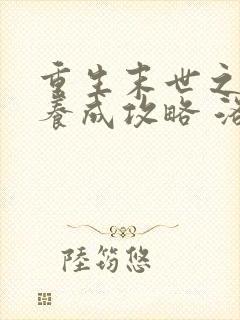 重生末世之
養成攻略 洛
陸筠悠